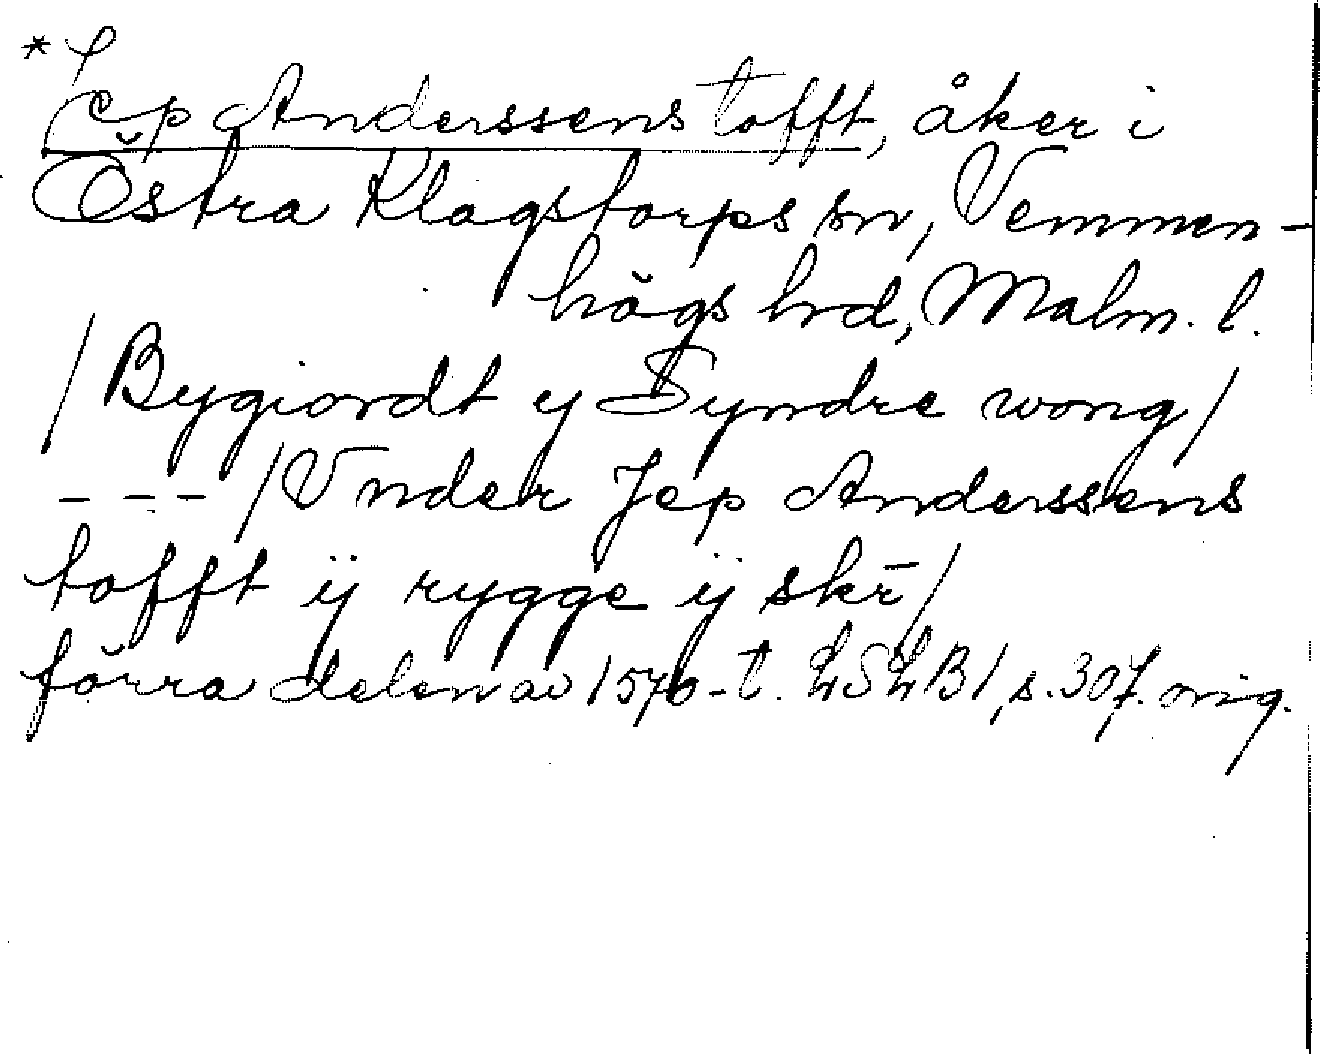 * Jep Anderssens tofft, åker i
Östra Klagstorps sn, Vemmen-
högs hd, Malm. l.
/Bygiordt y Syndre wong/
--- /Vnder Jep Anderssens
tofft ÿ rygge ÿ skr̄/
förra delen av 1570-t. LSLB1, s. 307. orig.